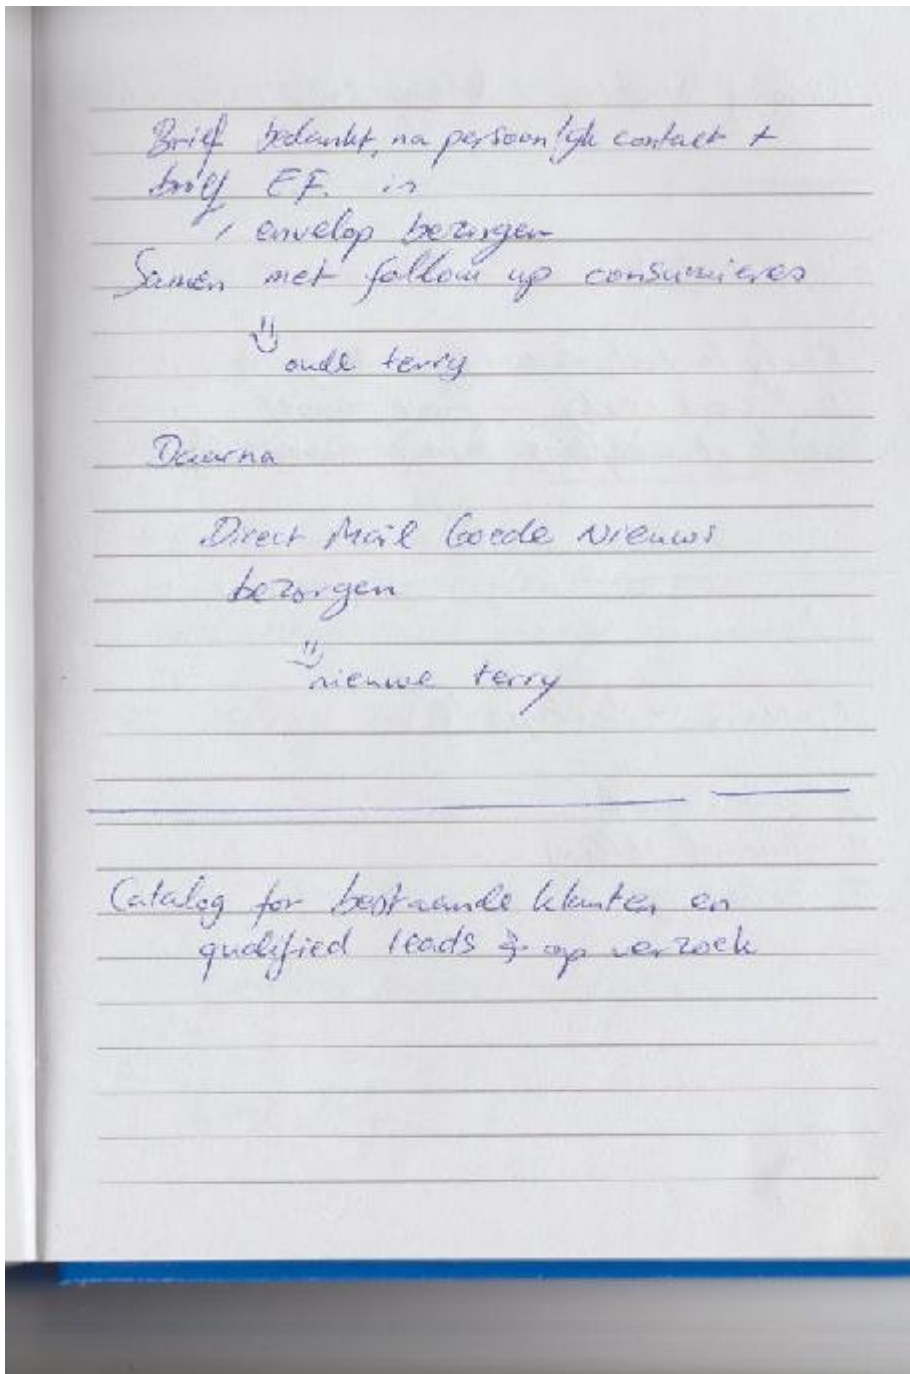 Brief bedankt, na persoonlijk contact +
brief E.F. in
envelop bezorgen
Samen met follow up
oude terry
Daarna
Direct Mail Goede Nieuws
bezorgen
nieuwe terry
Catalog for bestaande klanten en
qualified leads & op verzoek